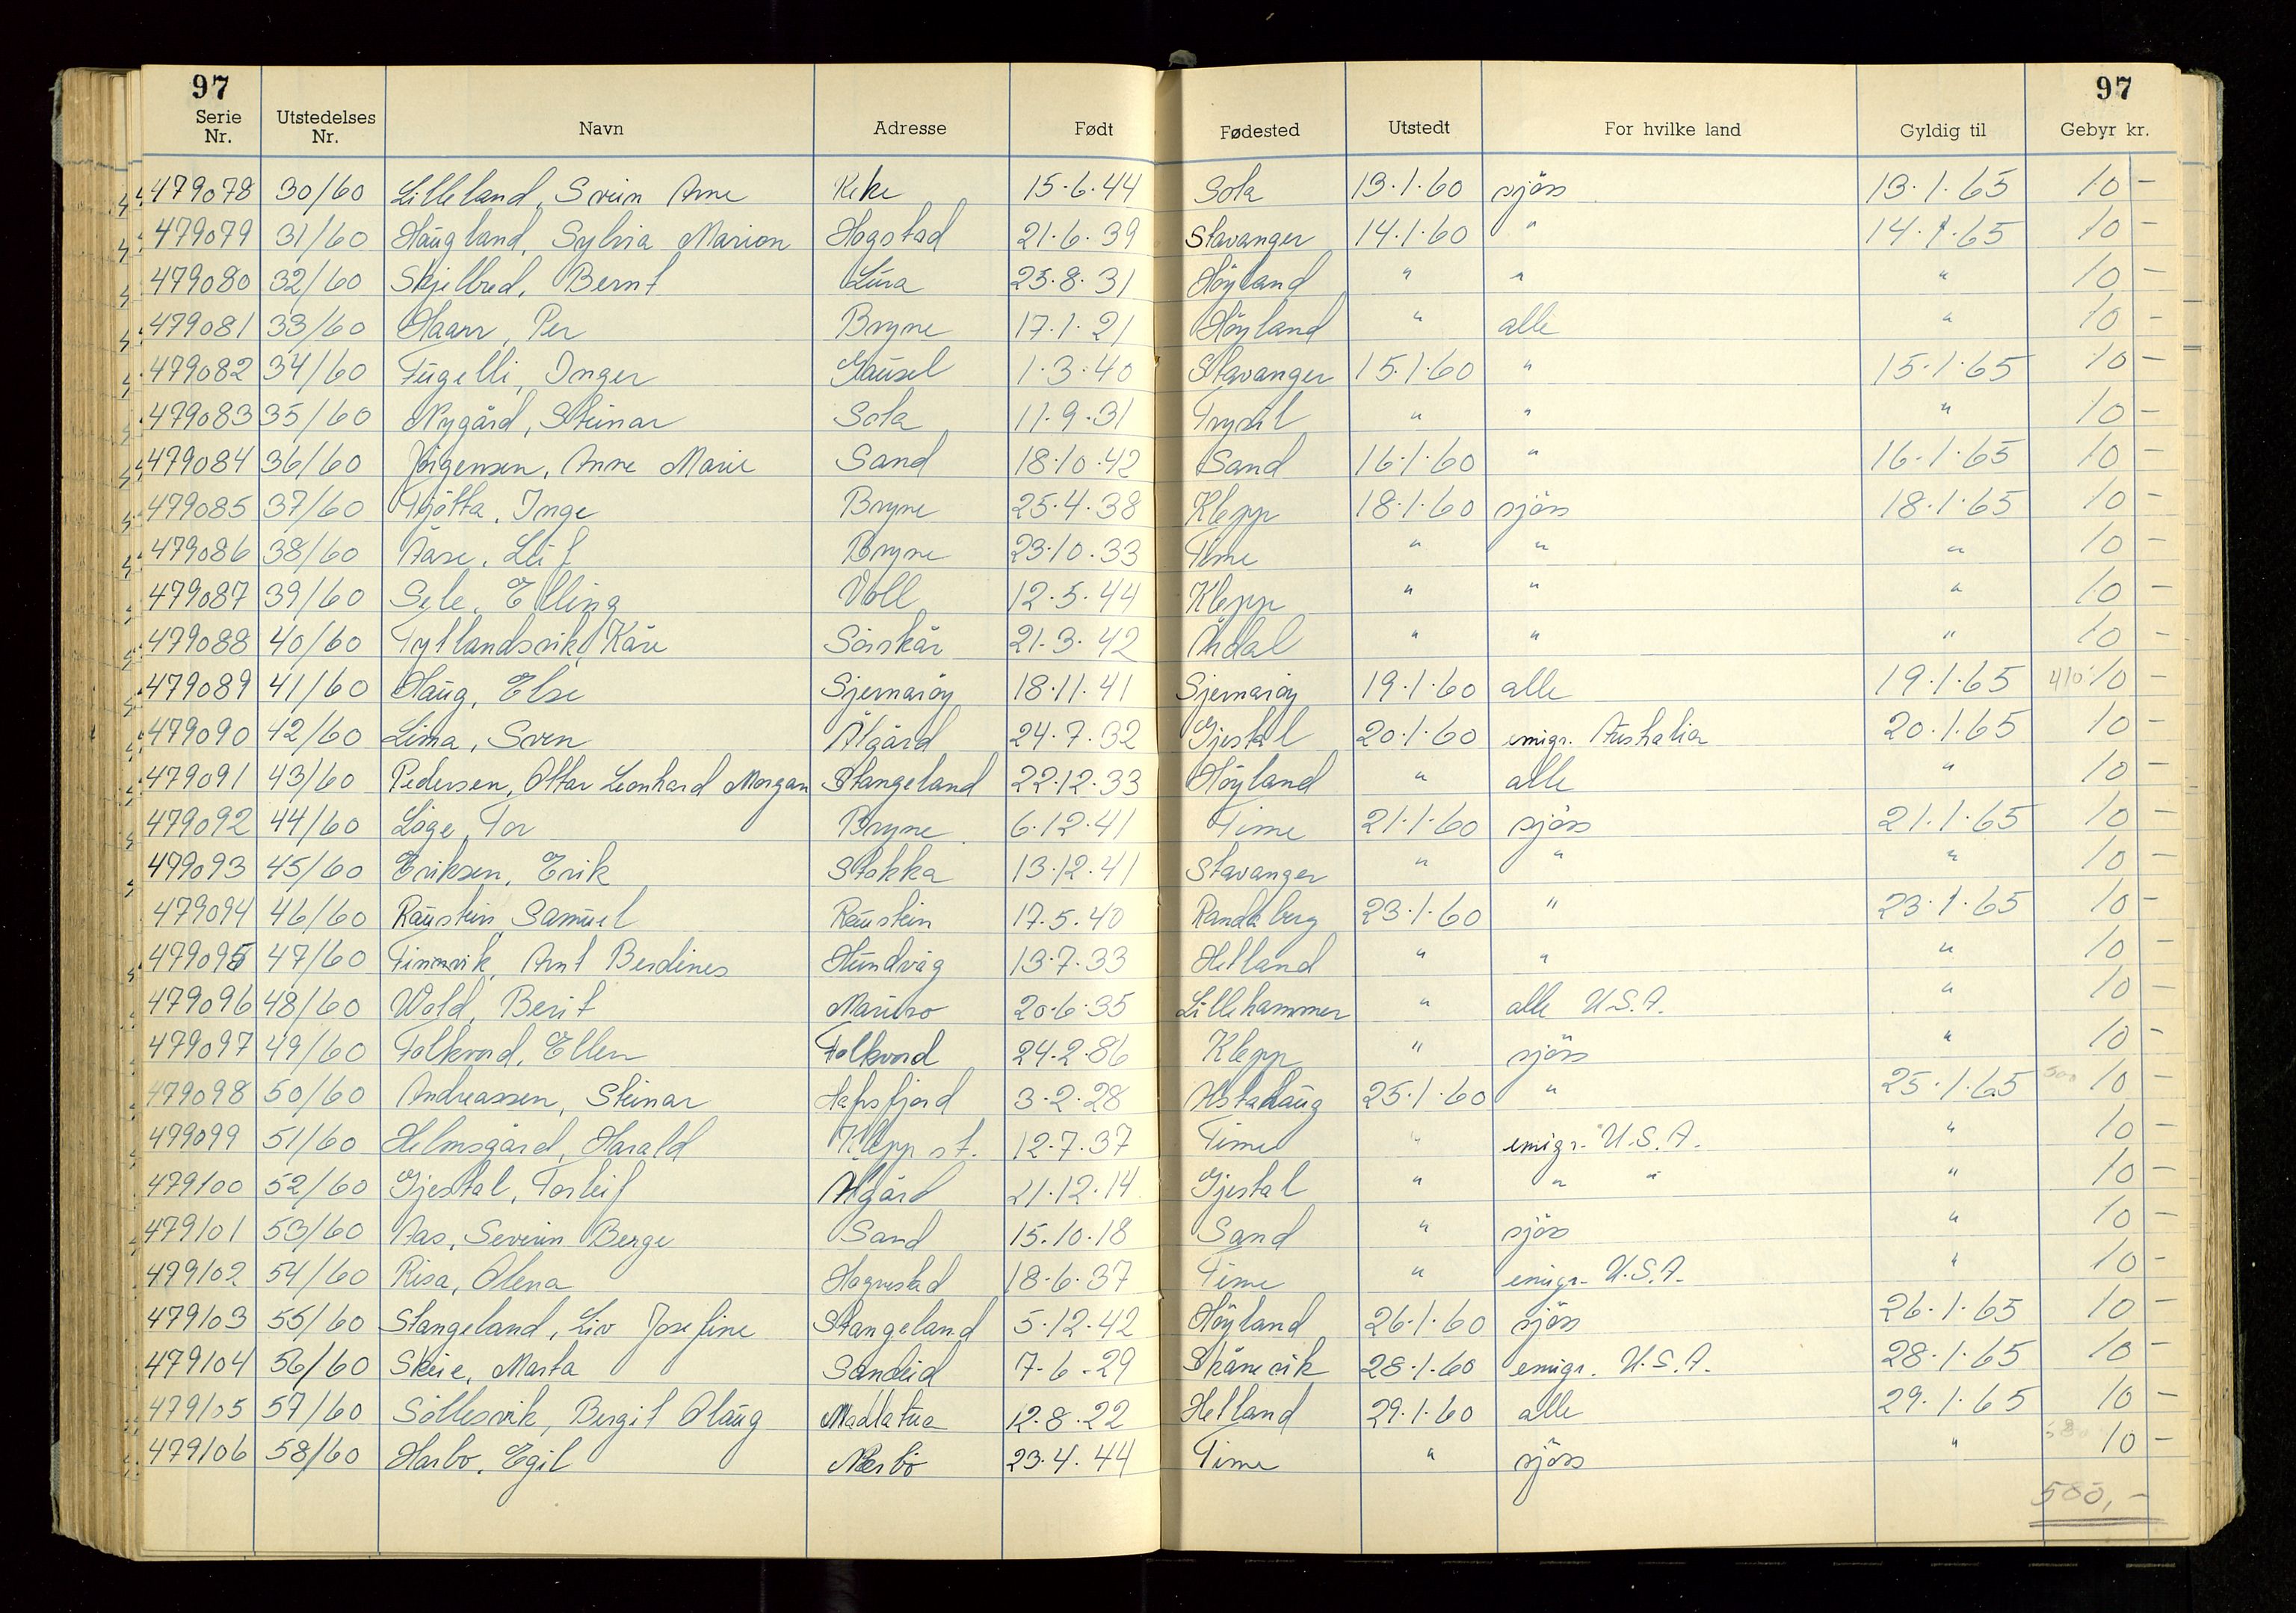 97 97
Serie Nr. Utstedelses Nr. Navn Adresse Født Fødested Utstedt For hvilke land Gyldig til Gebyr kr.
479078 30/60 Lilleland, Svein Arne 15.6.44 Sola 13.1.60 sjöss 13.1.65 10 -
479079 31/60 Haugland, Sylvia Marion Hogstad 21.6.39 Stavanger 14.1.60 " 14.1.65 10 -
479080 32/60 Skjelbred, Bernt Lura 23.8.31 Höyland " " " 10 -
479081 33/60 Haarr, Per Bryne 17.1.21 Höyland " alle " 10 -
479082 34/60 Fugelli, Inger Gausel 1.3.40 Stavanger 15.1.60 " 15.1.65 10 -
479083 35/60 Nygård, Steinar Sola 11.9.31 Trysil " " " 10 -
479084 36/60 Jörgensen, Anne Marie Sand 18.10.42 Sand 16.1.60 " 16.1.65 10 -
479085 37/60 Tjötta, Inge Bryne 25.4.38 Klepp 18.1.60 sjöss 18.1.65 10 -
479086 38/60 Åase, Leif Bryne 23.10.33 Time " " " 10 -
479087 39/60 Sele, Elling Voll 12.5.44 Klepp " " " 10 -
479088 40/60 Tytlandsvik, Kåre Sörskår 21.3.42 Årdal " " " 10 -
479089 41/60 Haug, Else Sjernaröy 18.11.41 Sjernaröy 19.1.60 alle 19.1.65 410 10 -
479090 42/60 Lima, Sven Ålgård 24.7.32 Gjestal 20.1.60 emigr. Australia 20.1.65 10 -
479091 43/60 Pedersen, Ottar Leonhard Morgan Stangeland 22.12.33 Höyland " alle " 10 -
479092 44/60 Löge, Tor Bryne 6.12.41 Time 21.1.60 sjöss 21.1.65 10 -
479093 45/60 Eriksen, Erik Stokka 13.12.41 Stavanger " " " 10 -
479094 46/60 Raustein, Samuel Raustein 17.5.40 Randaberg 23.1.60 " 23.1.65 10 -
479095 47/60 Finnvik, Arnt Berdines Hundvåg 13.7.33 Hetland " " " 10 -
479096 48/60 Wold, Berit 20.6.35 Lillehammer " alle U.S.A. " 10 -
479097 49/60 Folkvord, Ellen Folkvord 24.2.86 Klepp " sjöss " 10 -
479098 50/60 Andreassen, Steinar Hafrsfjord 3.2.28 Alstahaug 25.1.60 " 25.1.65 500 10 -
479099 51/60 Helmsgård, Harald Klepp st. 12.7.37 Time " emigr. U.S.A. " 10 -
479100 52/60 Gjestal, Torleif Ålgård 21.12.14 Gjestal " " " " 10 -
479101 53/60 Aas, Severin Berge Sand 15.10.18 Sand " sjöss " 10 -
479102 54/60 Risa, Olena Hognestad 18.6.37 Time " emigr. U.S.A. " 10 -
479103 55/60 Stangeland, Liv Josefine Stangeland 5.12.42 Höyland 26.1.60 sjöss 26.1.65 10 -
479104 56/60 Skeie, Marta Sandeid 7.6.29 Skånevik 28.1.60 emigr. U.S.A. 28.1.65 10 -
479105 57/60 Söllesvik, Bergit Olaug Madlatua 12.8.22 Hetland 29.1.60 alle 29.1.65 10 -
479106 58/60 Harbo, Egil Nærbö 23.4.44 Time " sjöss " 580 10 -
580,-